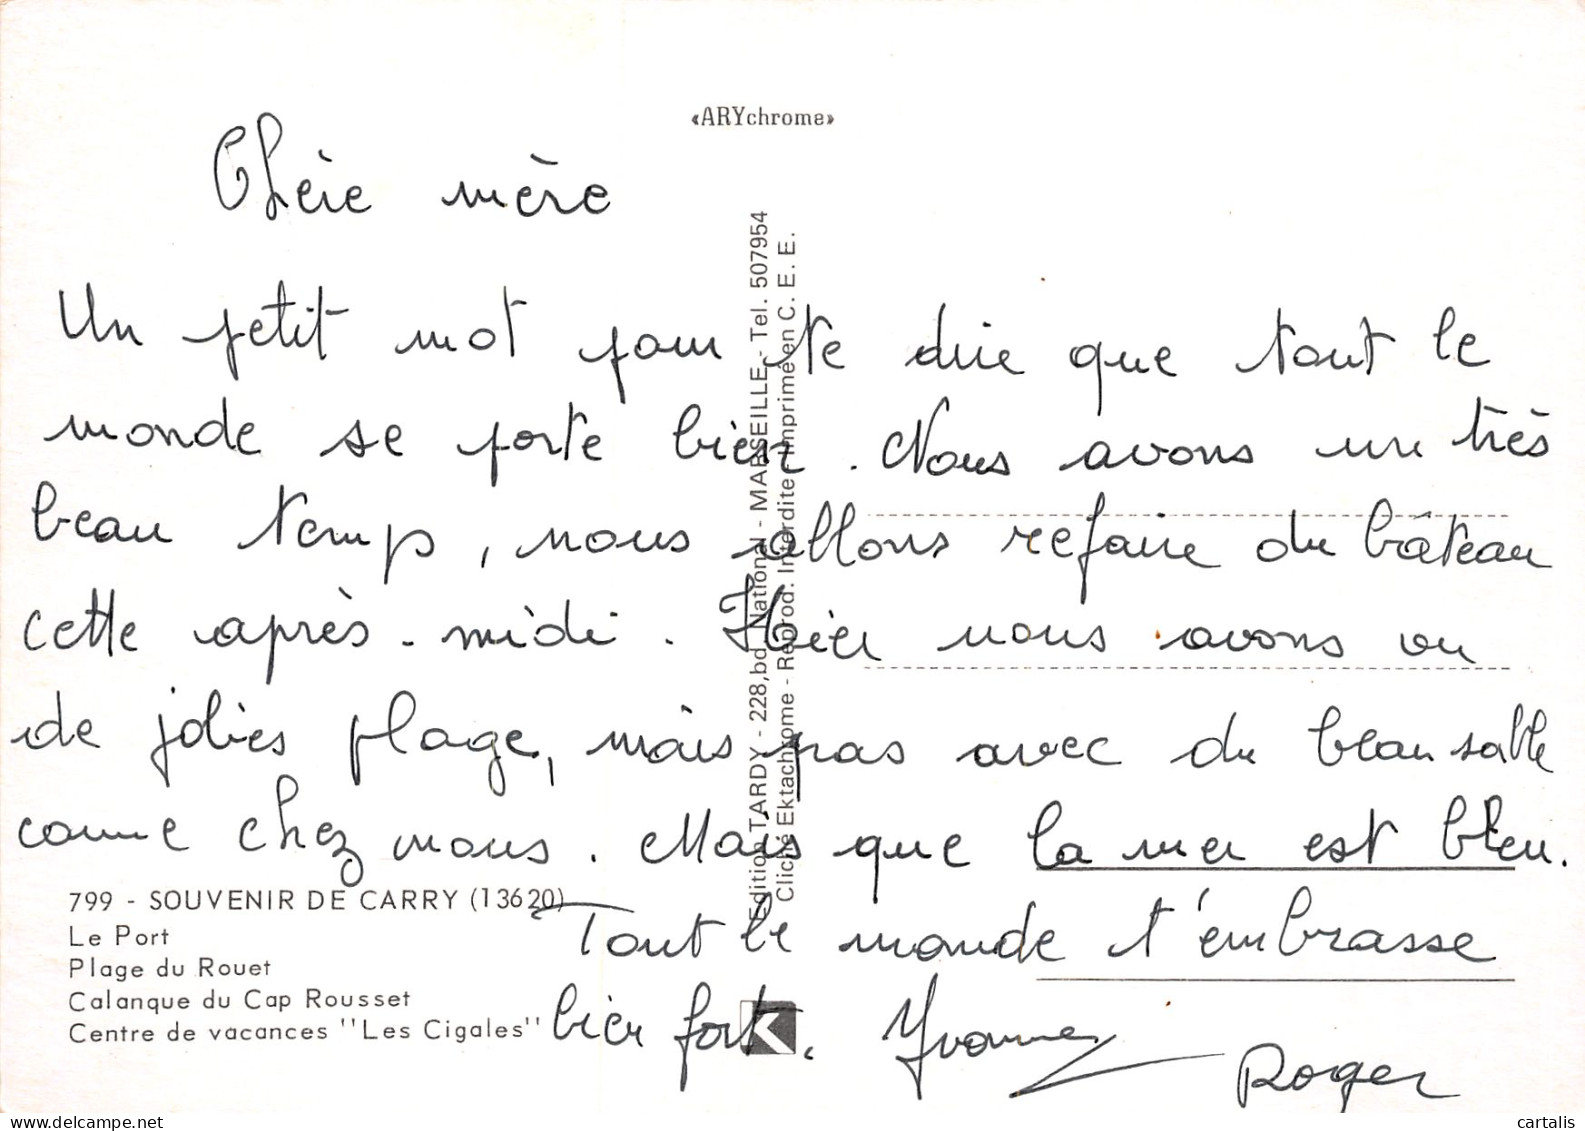 «ARYchrome»
Chère mère
Un petit mot pour te dire que tout le
monde se porte bien. Nous avons un très
beau temp, nous allons refaire du bâteau
cette après-midi. Hier nous avons vu
de jolies plage, mais pas avec du beau sable
comme chez nous. Mais que la mer est bleu.
Tout le monde t'embrasse
bien fort.
Yvonne
Roger
799 - SOUVENIR DE CARRY (13620)
Le Port
Plage du Rouet
Calanque du Cap Rousset
Centre de vacances "Les Cigales"
Edition TARDY - 228, bd. National - MARSEILLE - Tel. 507954
Cliché Ektachrome - Reprod. Interdite - Imprimé en C. E. E.
K
cartalis